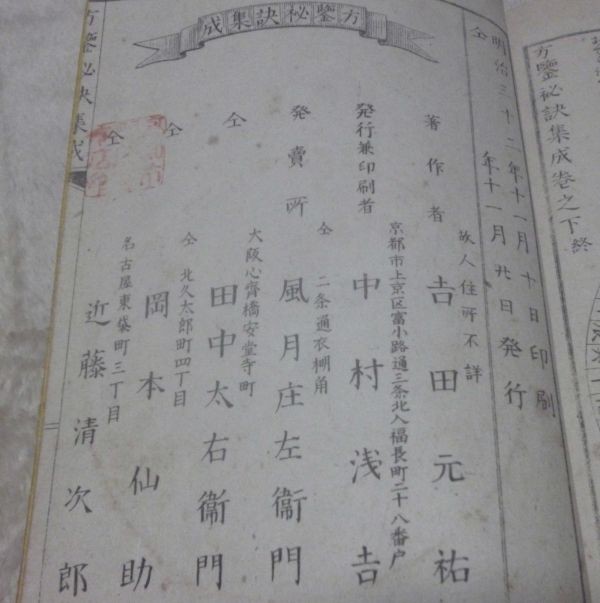 方鑒秘訣集成卷之下終
方鑒秘訣集成
明治三十二年十一月十日印刷
仝 年十一月廿日発行
著作者
故人住所不詳
吉田元祐
発行兼印刷者
京都市上京区富小路通三条北入福長町二十八番戸
中村浅吉
発賣所
仝 二条通衣棚角
風月庄左衞門
仝
大阪心齋橋安堂寺町
田中太右衞門
仝
仝 北久太郎町四丁目
岡本仙助
仝
名古屋東袋町三丁目
近藤清次郎
方鑒秘訣集成